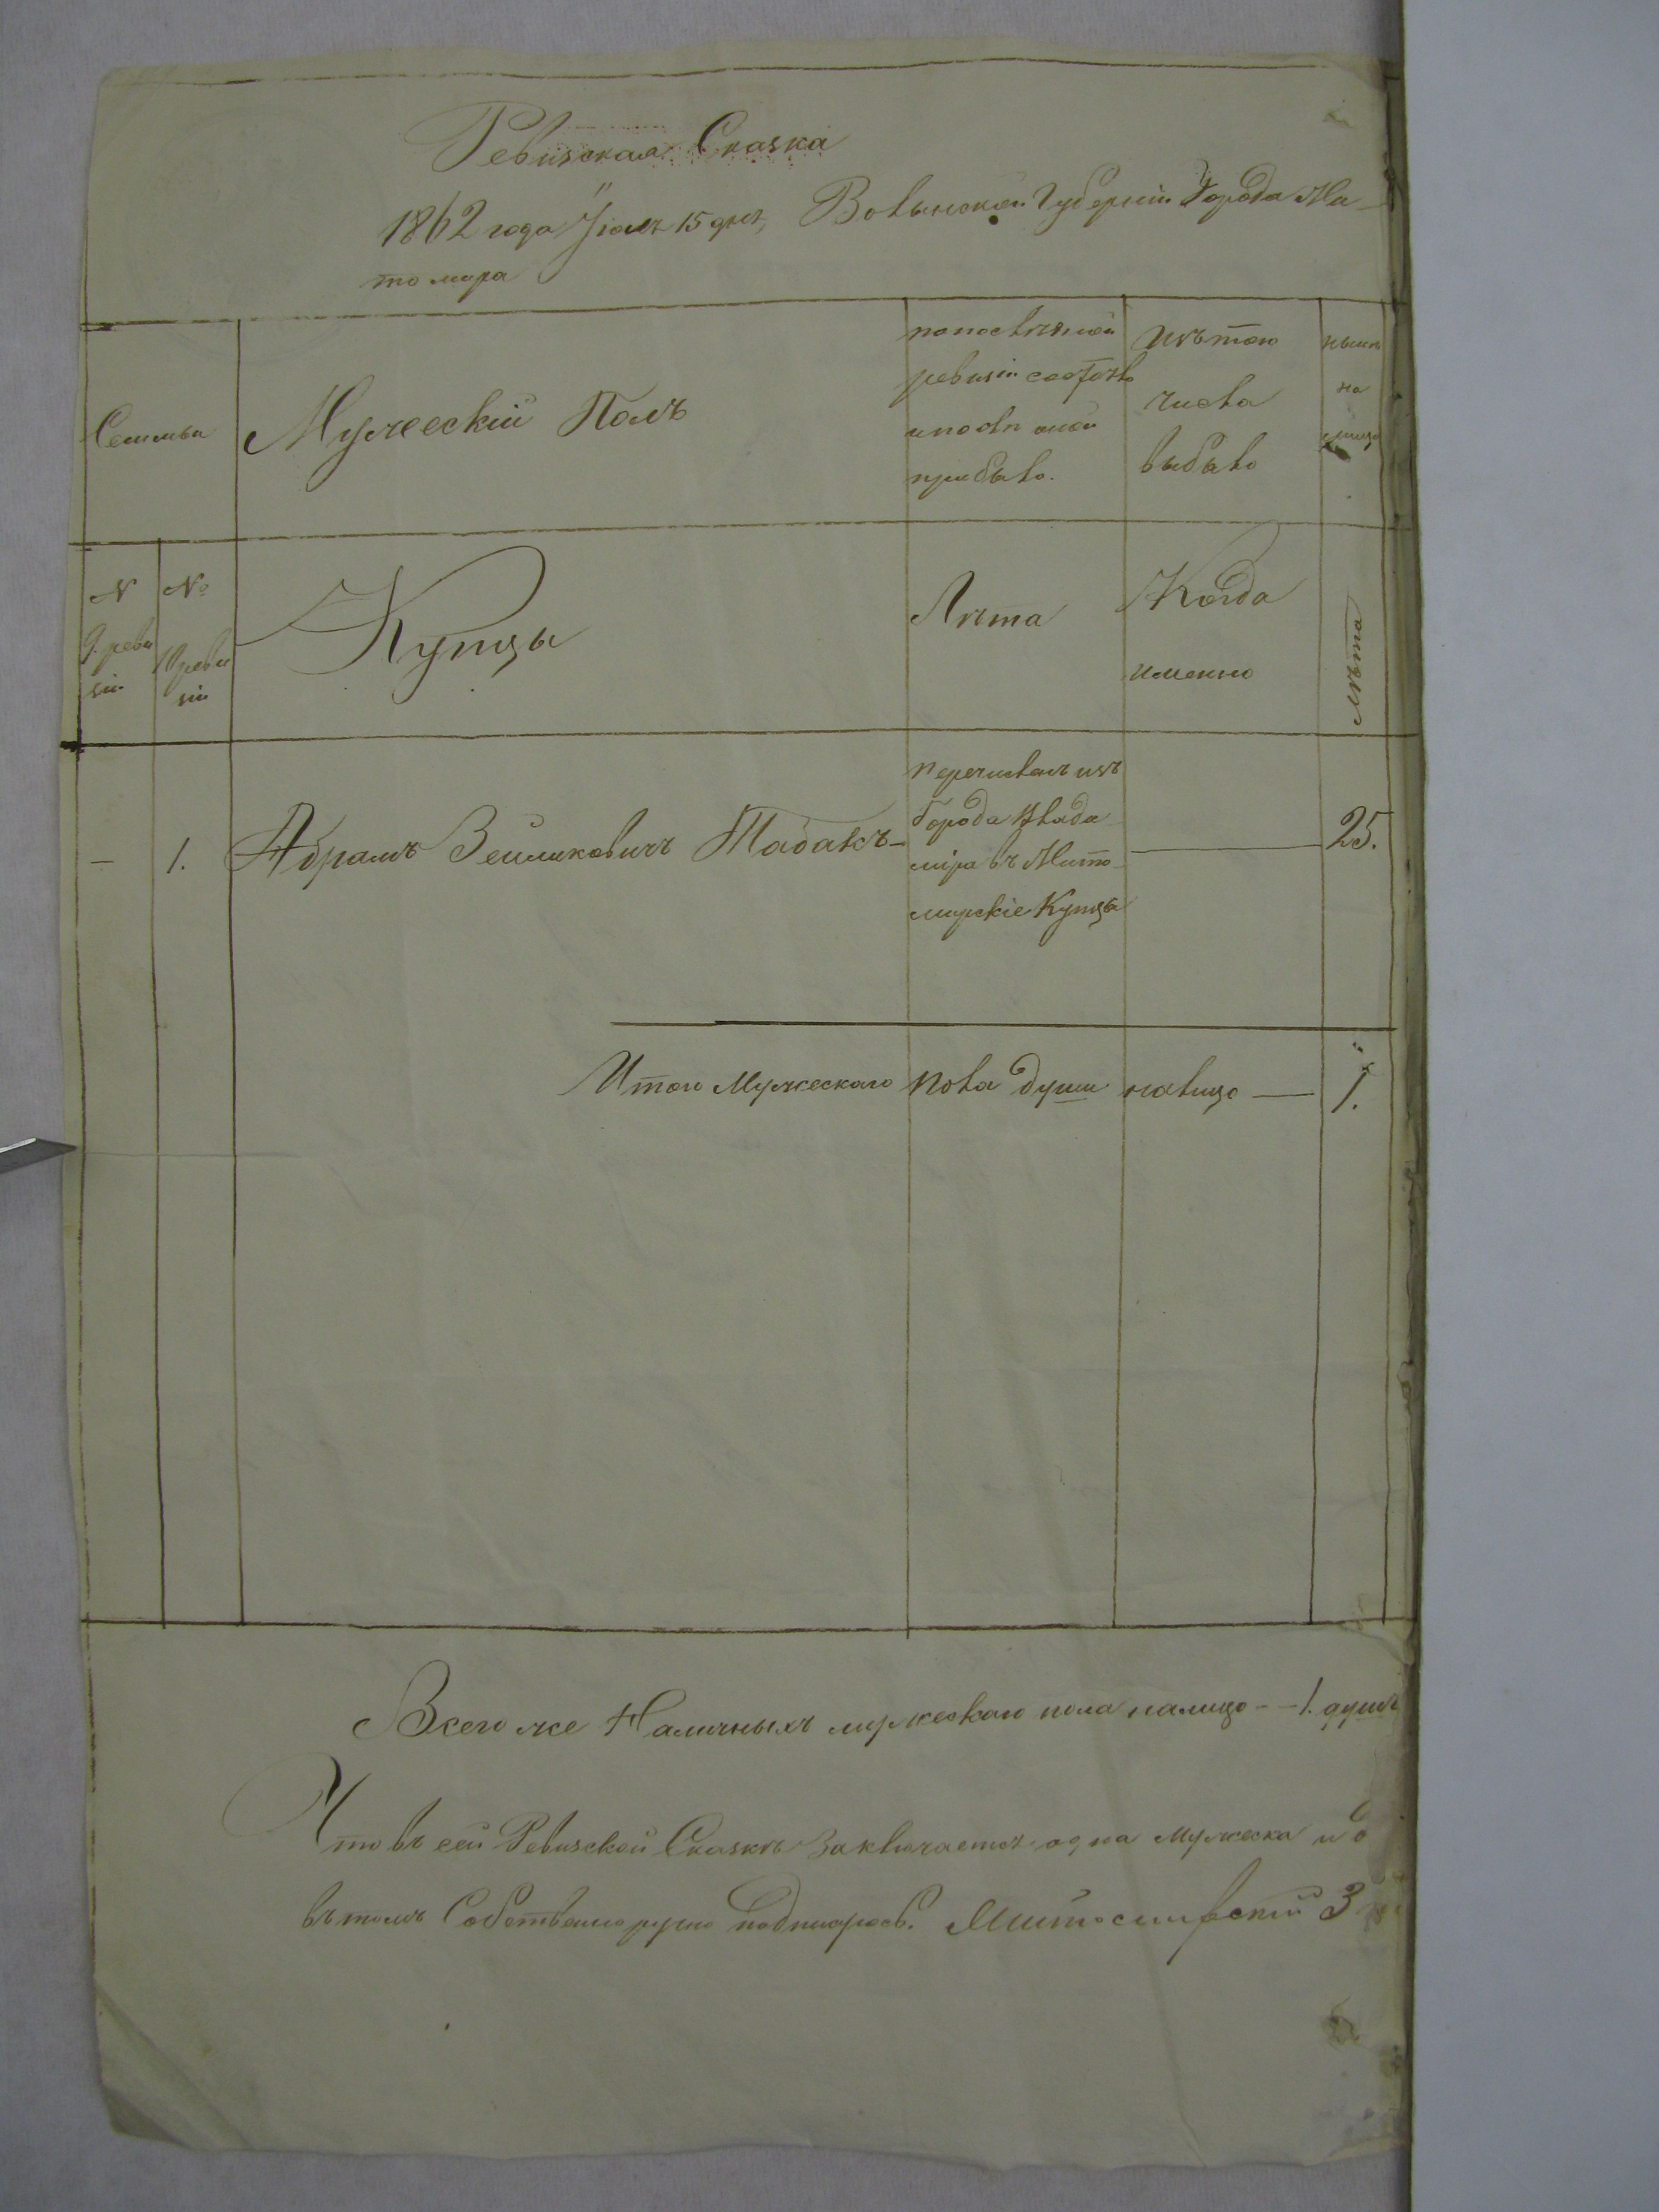 Ревизская Сказка
1862 года Іюля 15 дня, Волынской Губерніи Города Жи-
томира
Семьи
Мужескій Полъ
по последней
ревизіи состояло
и после оной
прибыло.
Изъ того
числа
выбыло
ныне
на
лицо
N
9. реви
зіи
№
10 реви
зіи
Купцы
Лета
Когда
именно
лета
—
1.
Абрамъ Зейликовичъ Табакъ—
перечисленъ изъ
Города Влади
міра въ Жито-
мирскіе Купцы
25.
Итого Мужескаго пола души налицо — 1.
Всего же Наличныхъ мужескаго пола налицо - - 1. душа
Что въ сей Ревизской Сказке заключается одна мужеска
въ томъ Собственноручно подпишусь.